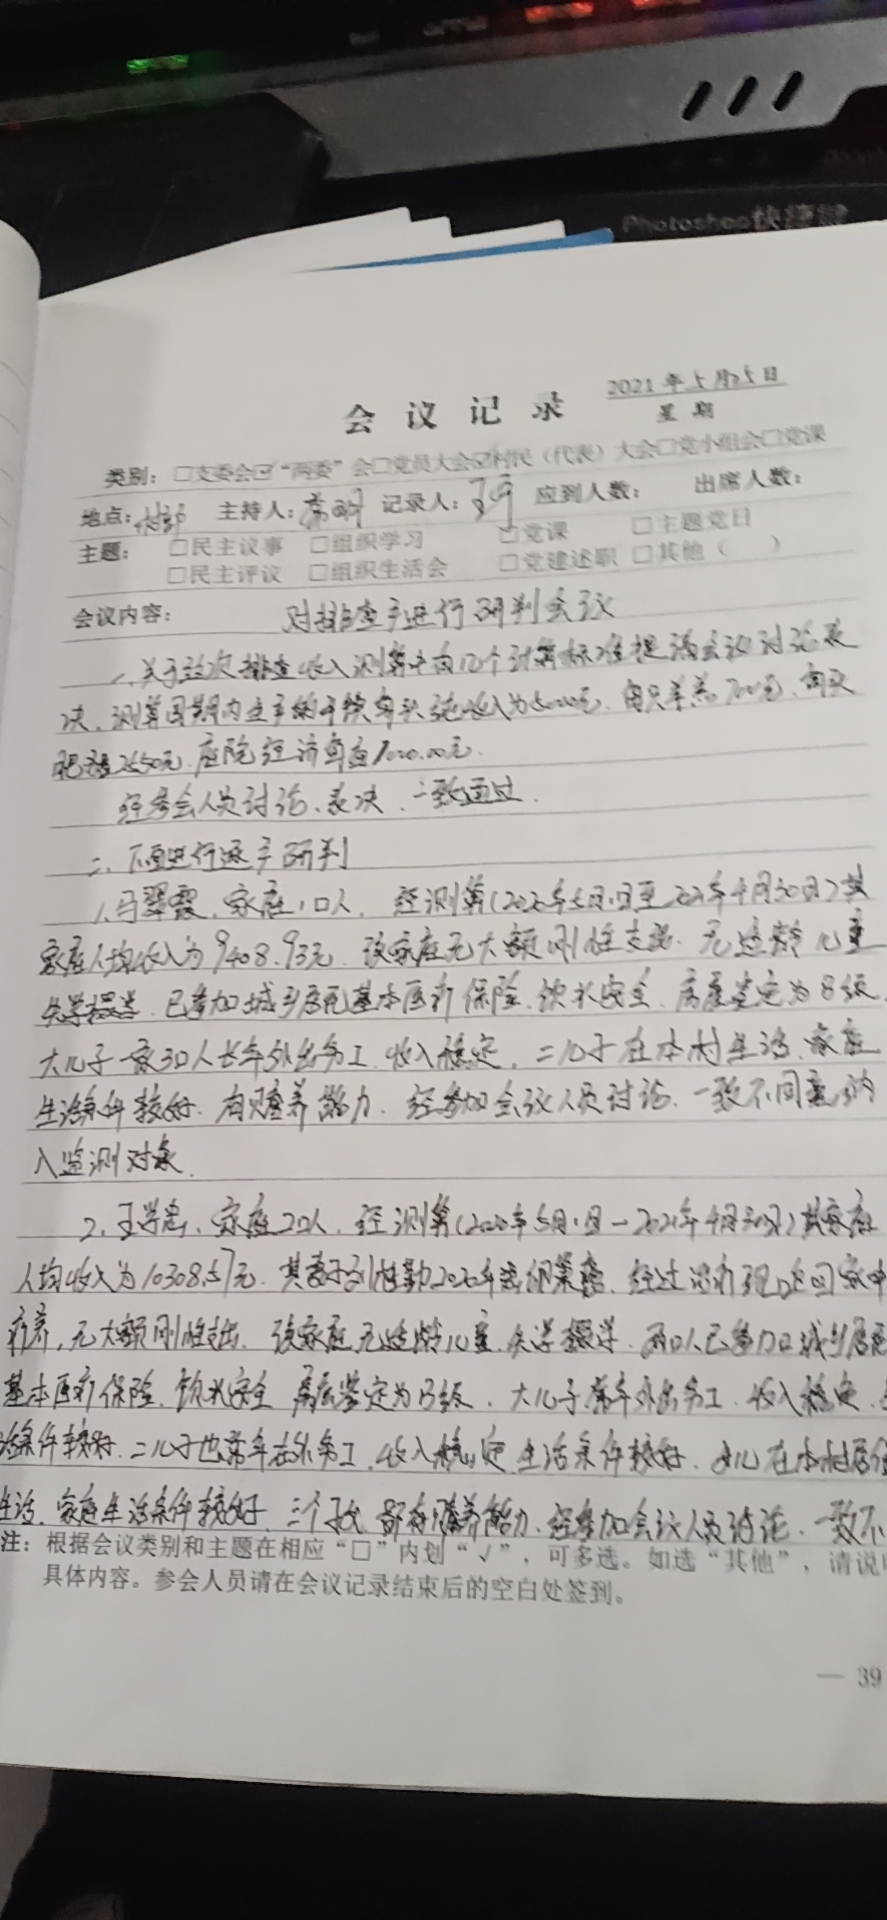 Photoshop快捷键
会议记录
2021年5月25日
星期
类别：□支委会☑“两委”会□党员大会☑村民（代表）大会□党小组会□党课
地点：村部 主持人： 记录人： 应到人数： 出席人数：
主题： □民主议事 □组织学习 □党课 □主题党日
□民主评议 □组织生活会 □党建述职 □其他（ ）
会议内容： 对排查户进行研判会议
一、关于这次排查收入测算中有12个计算标准提请会议讨论表
决，测算周期内生产的干犊每头纯收入为5000元，每只羊羔700元，每头
肥猪2650元，庭院经济每亩1000.00元．
经参会人员讨论、表决，一致通过．
二、下面进行逐户研判
1、马翠霞，家庭1口人，经测算（2020年5月1日至2021年4月30日）其
家庭人均收入为9408.93元，该家庭无大额刚性支出，无适龄儿童
失学辍学，已参加城乡居民基本医疗保险，饮水安全，房屋鉴定为B级，
大儿子一家3口人长年外出务工，收入稳定，二儿子在本村生活，家庭
生活条件较好，有赡养能力，经参加会议人员讨论，一致不同意纳
入监测对象．
2、王学忠，家庭2口人，经测算（2020年5月1日－2021年4月30日）其家庭
人均收入为10308.57元，其妻子 2020年患 ，经过治疗现已回家中
疗养，无大额刚性支出，该家庭无适龄儿童失学辍学，两口人已参加城乡居民
基本医疗保险，饮水安全，房屋鉴定为B级，大儿子常年外出务工，收入稳定，
活条件较好，二儿子也常年在外务工，收入稳定，生活条件较好，女儿在本村居住
生活，家庭生活条件较好，三个子女都有赡养能力，经参加会议人员讨论，一致不
注：根据会议类别和主题在相应“□”内划“√”，可多选。如选“其他”，请说明
具体内容。参会人员请在会议记录结束后的空白处签到。
— 39